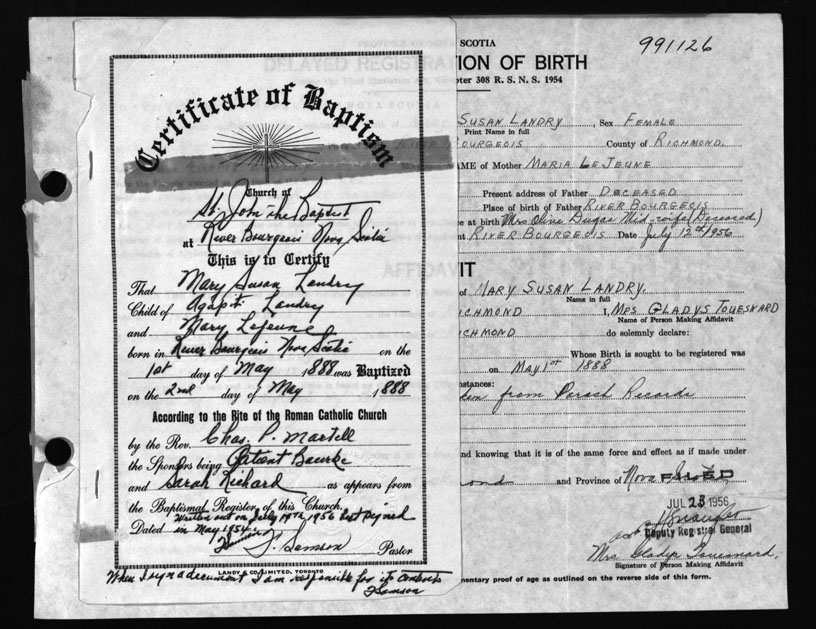 Certificate of Baptism
Church of
St. John the Baptist
at River Bourgeois Nova Scotia
This is to Certify
That Mary Susan Landry
Child of Agapit Landry
and Mary Lejeune
born in River Bourgeois Nova Scotia on the
1st day of May 1888 was Baptized
on the 2nd day of May 1888
According to the Rite of the Roman Catholic Church
by the Rev. Chas. P. Martell
the Sponsors being Bourke
and Sarah Richard as appears from
the Baptismal Register of this Church.
Written out on July 19th, 1956 but signed
Dated in May 1954
J. Samson Pastor
LANDY & CO. LIMITED, TORONTO
When I sign a document I am responsible for its contents
JSamson
SCOTIA
991126
DELAYED REGISTRATION OF BIRTH
pter 308 R. S. N. S. 1954
SUSAN LANDRY Sex FEMALE
Print Name in full
BOURGEOIS County of RICHMOND.
AME of Mother MARIA LEJEUNE
Present address of Father DECEASED
Place of birth of Father RIVER BOURGEOIS
e at birth Mrs Olive Dugas Mid-wife (Deceased)
t RIVER BOURGEOIS Date July 12th 1956
AFFIDAVIT
of MARY SUSAN LANDRY.
Name in full
ICHMOND I, MRS GLADYS TOUESNARD
Name of Person Making Affidavit
ICHMOND do solemnly declare:
Whose Birth is sought to be registered was
on MAY 1st 1888
mstances:
ken from Parash Records
nd knowing that it is of the same force and effect as if made under
mond and Province of Nova Scotia
FILED
JUL 23 1956
Deputy Registrar General
Mrs Gladys Touesnard,
Signature of Person Making Affidavit
mentary proof of age as outlined on the reverse side of this form.